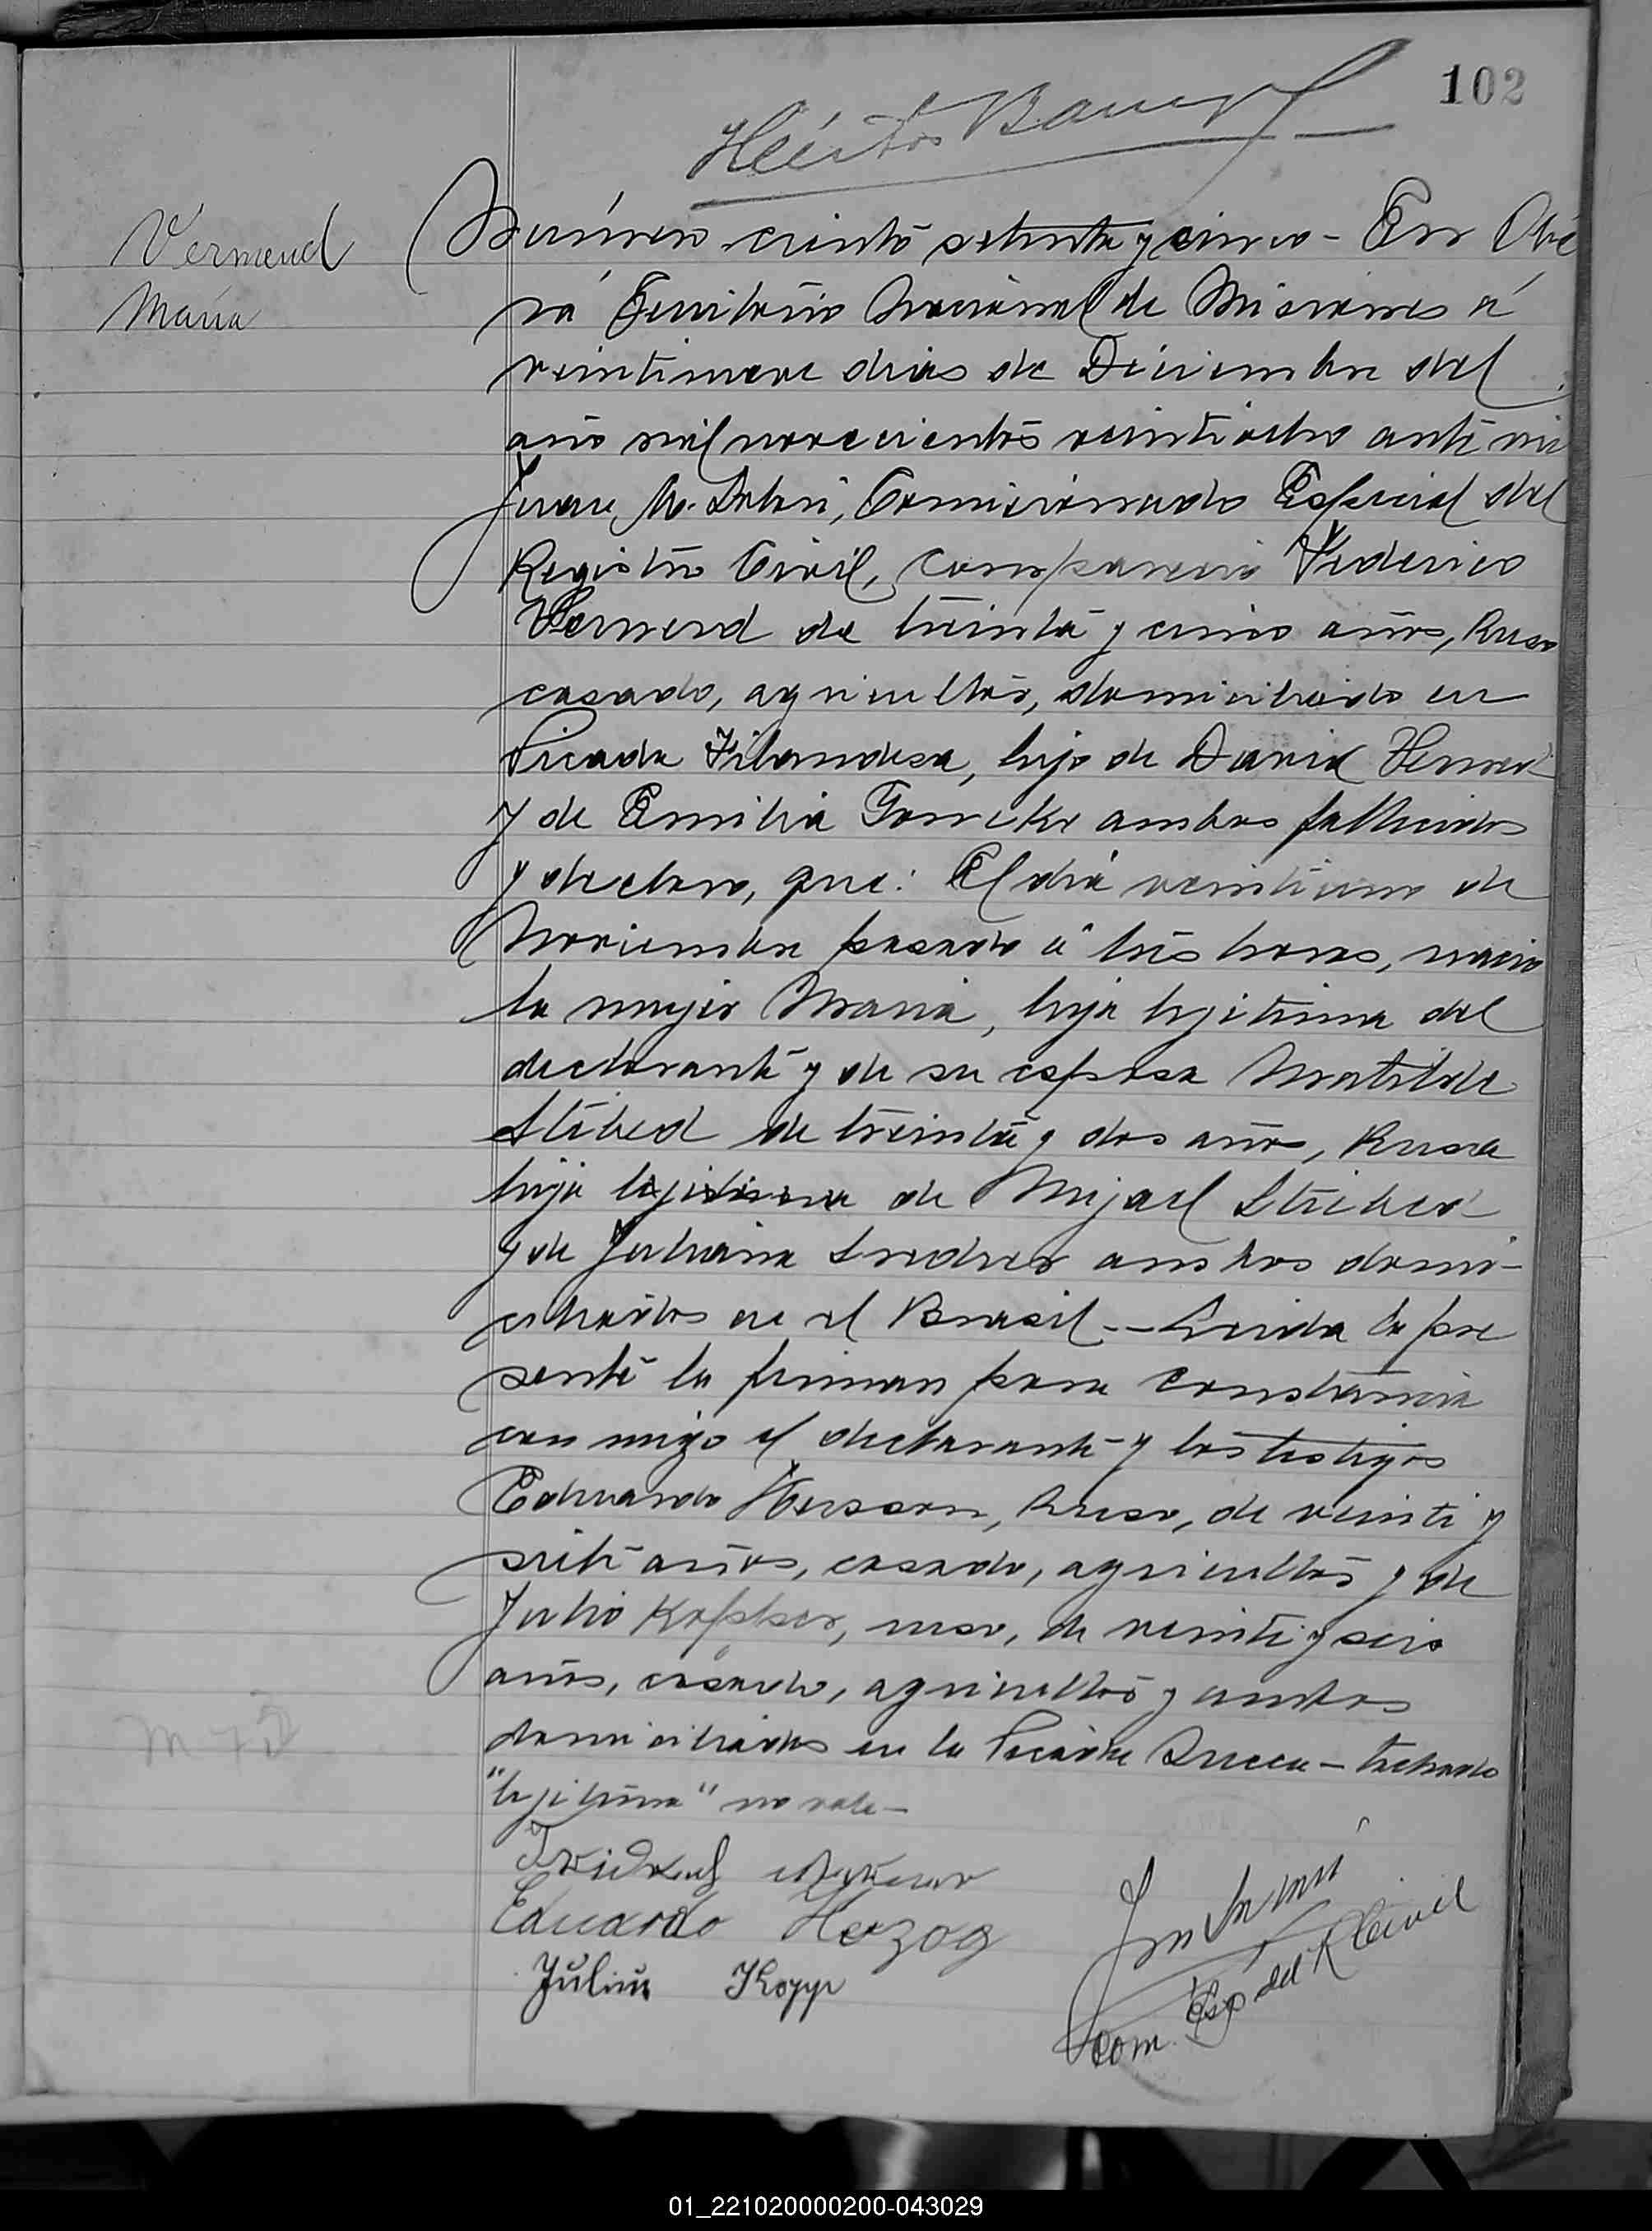 102
Vermend
María
Número ciento setenta y cinco - En Obe
rá Territorio Nacional de Misiones á
veintinueve dias de Diciembre del
año mil novecientos veintiocho ante mi
Juan M. Comisionado Especial del
Registro Civil, compareció Federico
Vermend de treinta y cinco años, Ruso
casado, agricultor, domiciliado en
Picada Filandesa, hijo de David
y de Emilia ambos fallecidos
y declaro, que: El dia veintiuno de
Noviembre pasado á tres horas, nacio
la mujer Maria, hija lejitima del
declarante y de su esposa Matilde
de treinta y dos años, Rusa
hija lejitima de Mijael
y de Juliana ambos domi-
ciliados en el Brasil -- Leida la pre
sente la firman para constancia
conmigo el declarante y los testigos
Eduardo Ruso, de veinti y
siete años, casado, agricultor y de
Julio ruso, de veinte y seis
años, casado, agricultor y ambos
domiciliados en la Picada Sueca - tachado
"lejitima" no vale -
Eduardo Herzog
Julius Kopp
Com. Esp del R Civil
01_221020000200-043029